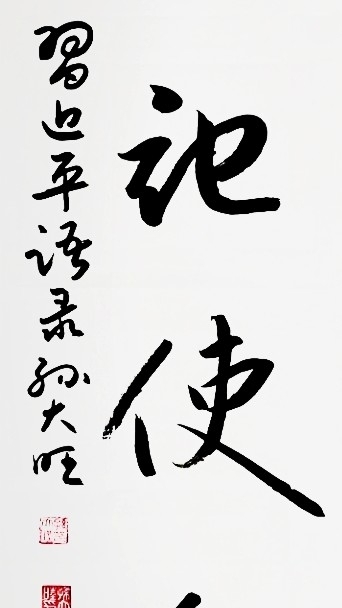 记使
習近平语录孙大旺